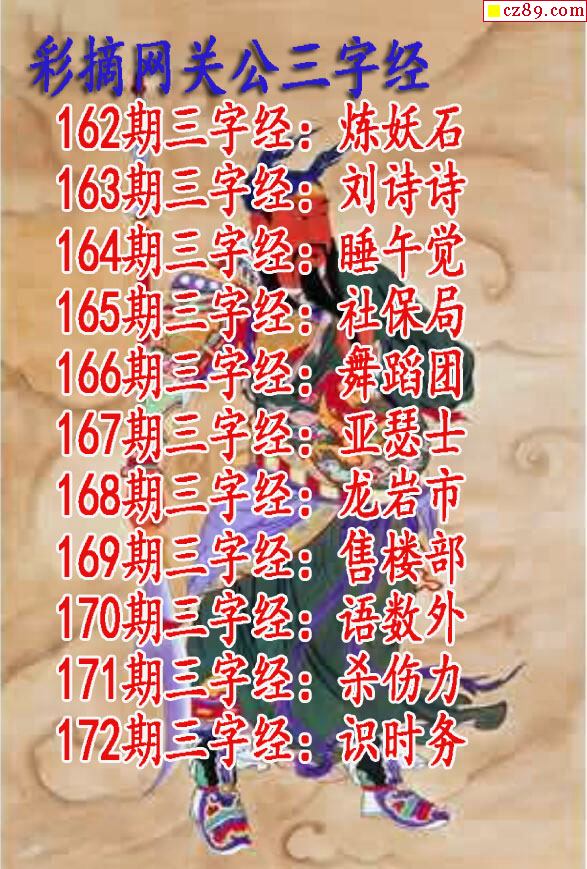 cz89.com
彩摘网关公三字经
162期三字经：炼妖石
163期三字经：刘诗诗
164期三字经：睡午觉
165期三字经：社保局
166期三字经：舞蹈团
167期三字经：亚瑟士
168期三字经：龙岩市
169期三字经：售楼部
170期三字经：语数外
171期三字经：杀伤力
172期三字经：识时务